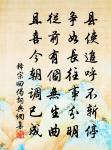 縣使追呼不暫停
爭如長往事分明
從前有個無生曲
且喜今朝調已成
釋宗回偈